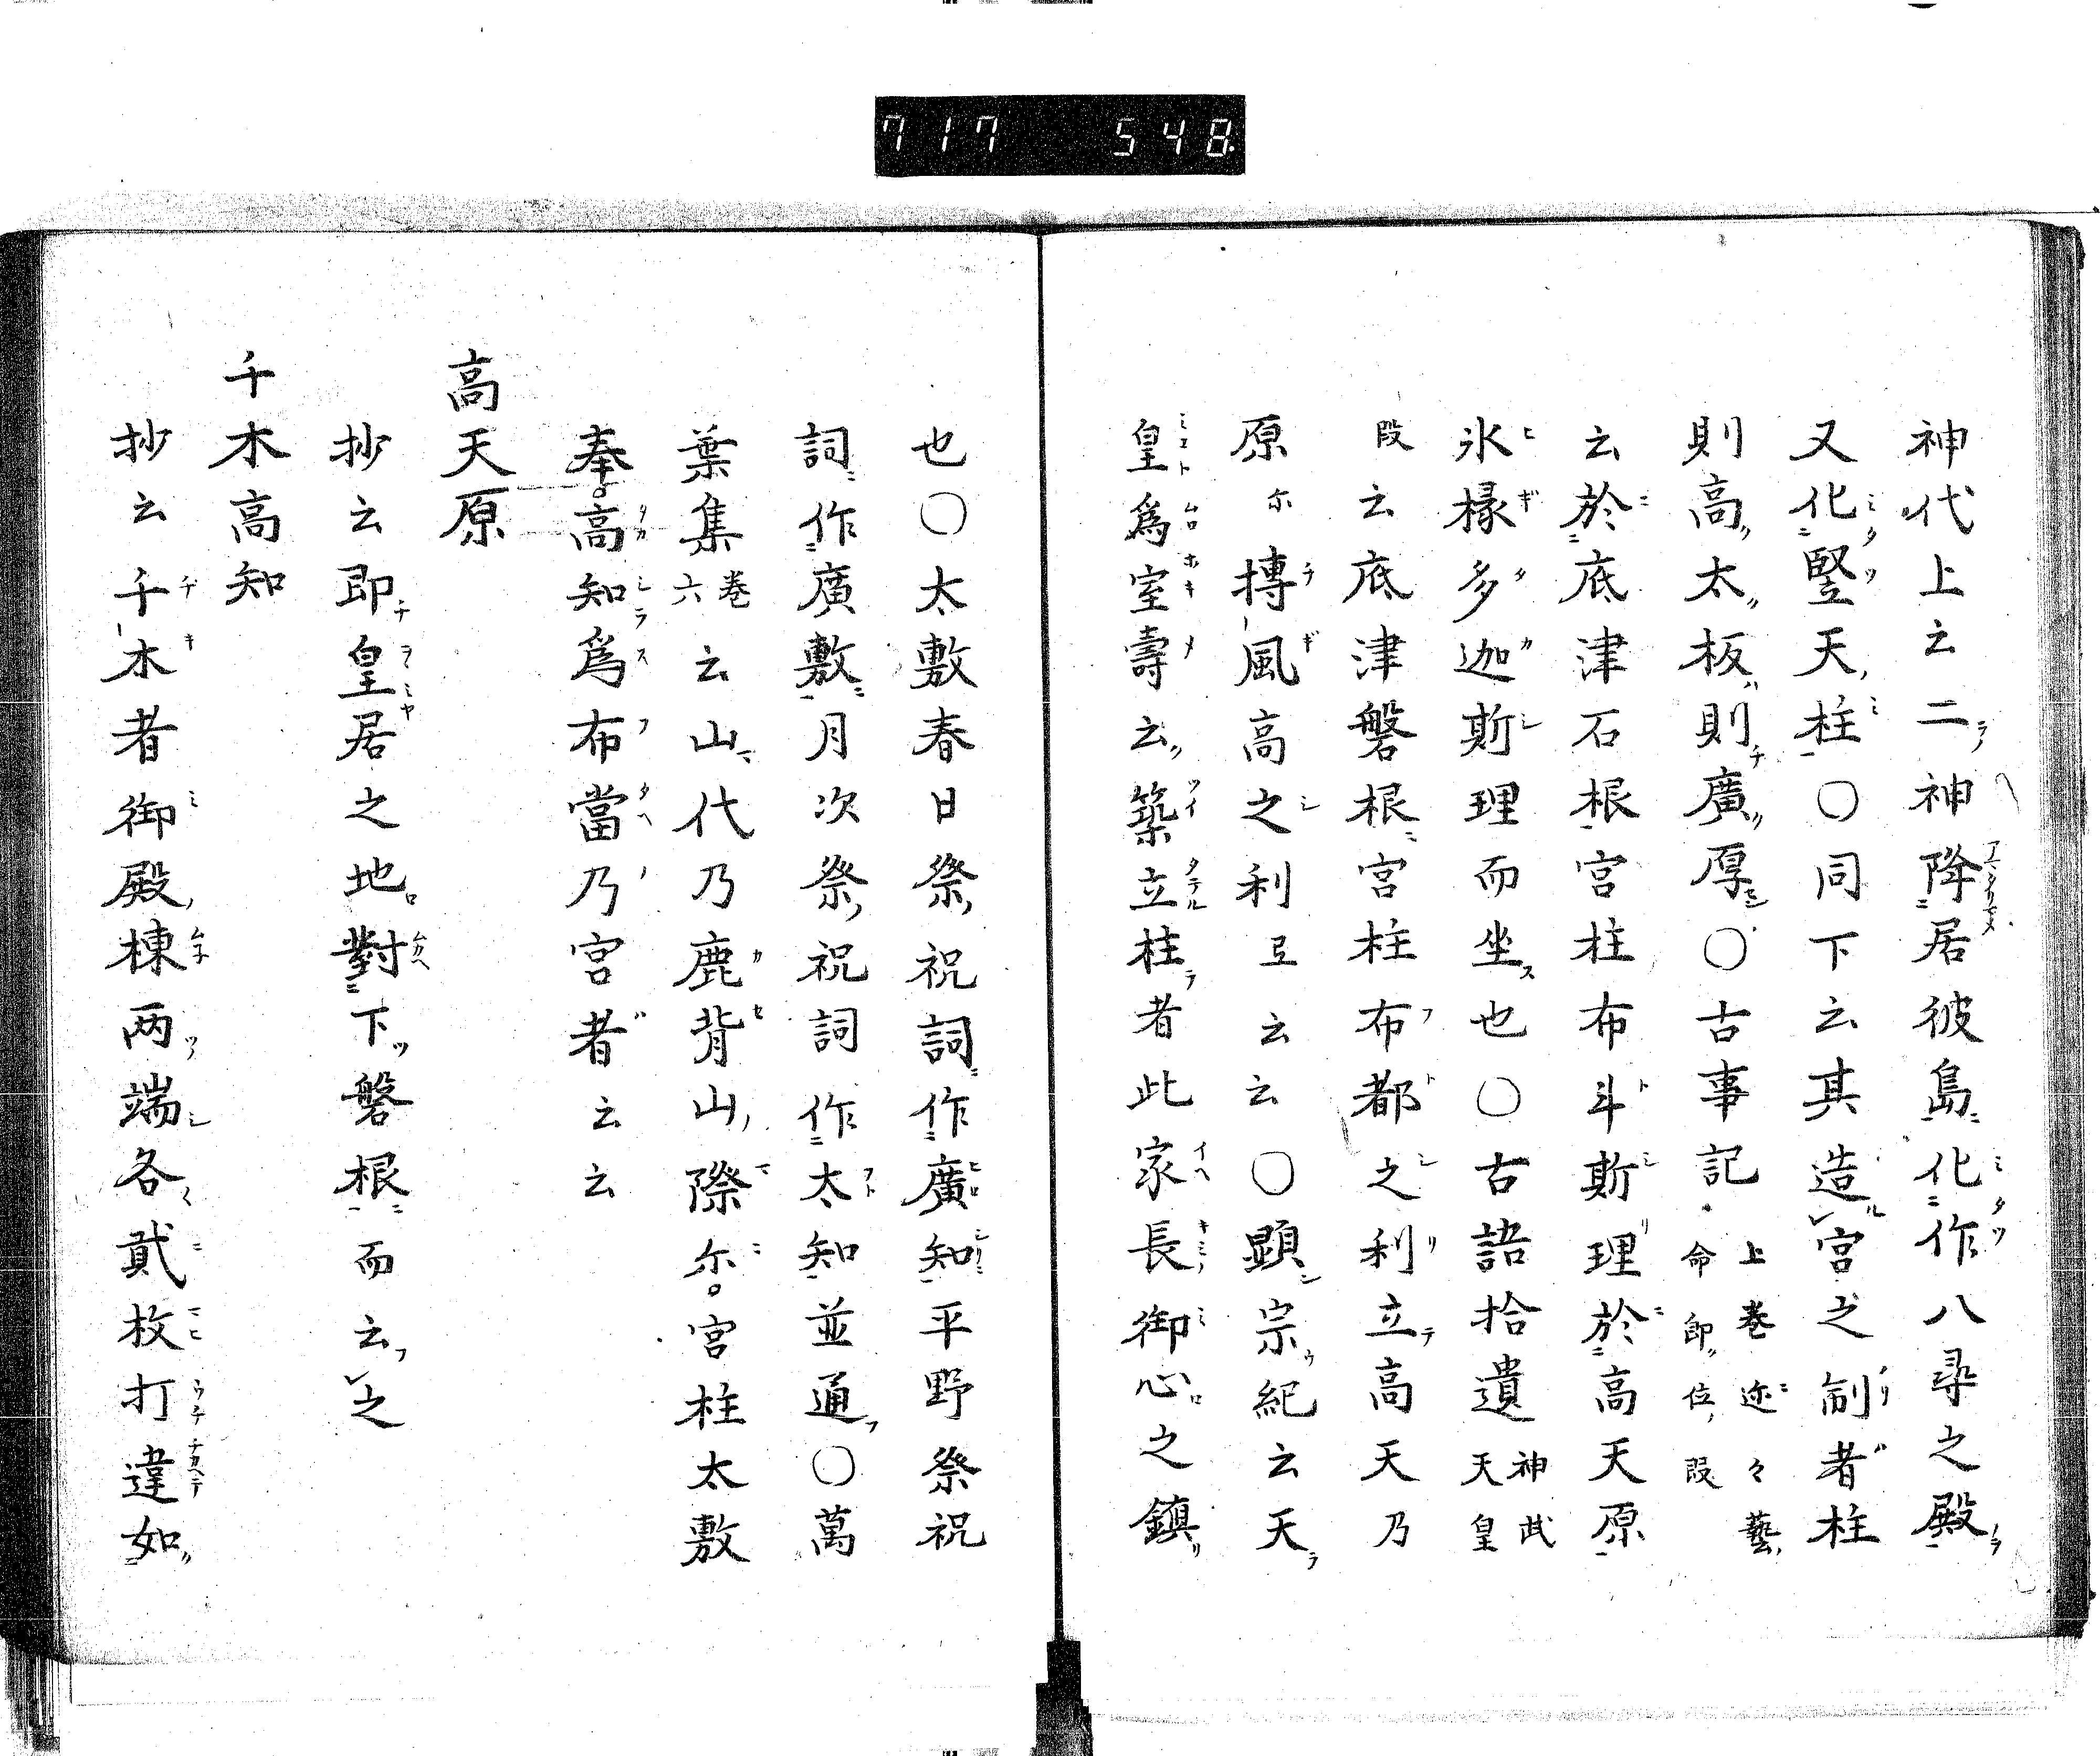 717 548.
神代上云二神降居彼島化作八尋之殿
又化竪天柱〇同下云其造宮之制者柱
則高太板則廣厚〇古事記上巻迩々藝命即位段
云於底津石根宮柱布斗斯理於高天原
氷椽多迦斯理而坐也〇古語拾遺神武天皇
段云底津磐根宮柱布都之利立高天乃
原尓摶風高之利弖云云〇顕宗紀云天
皇為室壽云築立柱者此家長御心之鎮
也〇太敷春日祭祝詞作廣知平野祭祝
詞作廣敷月次祭祝詞作太知並通〇萬
葉集巻六云山代乃鹿背山際尓宮柱太敷
奉高知為布當乃宮者云云
高天原
抄云即皇居之地對下磐根而云之
千木高知
抄云千木者御殿棟両端各貳枚打違如